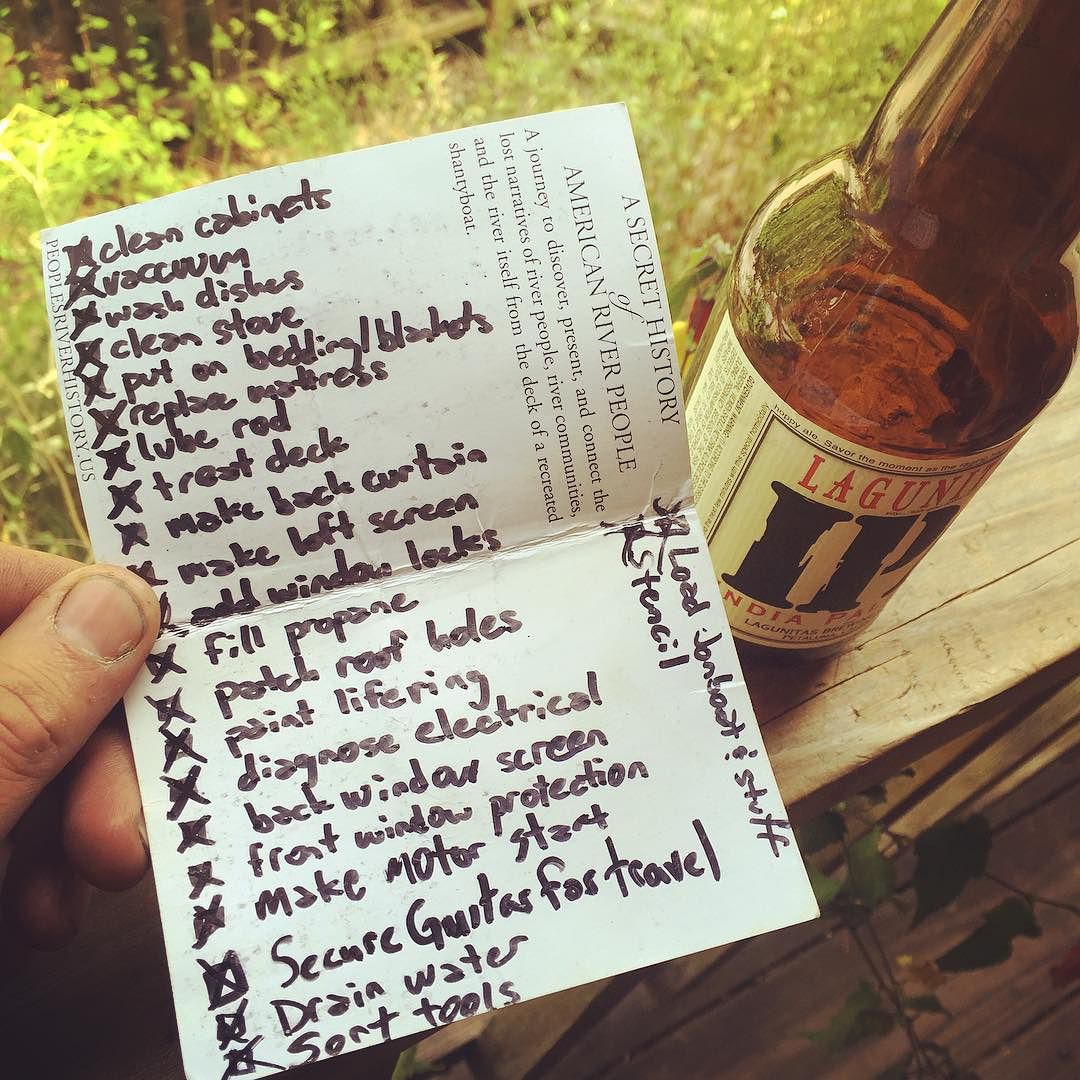 clean cabinets
vaccuum
wash dishes
clean stove
put on bedding/blankets
replace mattress
lube rod
treat deck
make back curtain
make loft screen
add window locks
fill propane
patch roof holes
paint lifering
diagnose electrical
back window screen
front window protection
make motor start
Secure Guitar for travel
Drain water
Sort tools
Load Jonboat & stuff
Stencil
A SECRET HISTORY
of
AMERICAN RIVER PEOPLE
A journey to discover, present, and connect the
lost narratives of river people, river communities,
and the river itself from the deck of a recreated
shantyboat.
PEOPLESRIVERHISTORY.US
hoppy ale. Savor the moment as the
LAGUNIT
IP
NDIA PA
LAGUNITAS BREW
PETALUMA